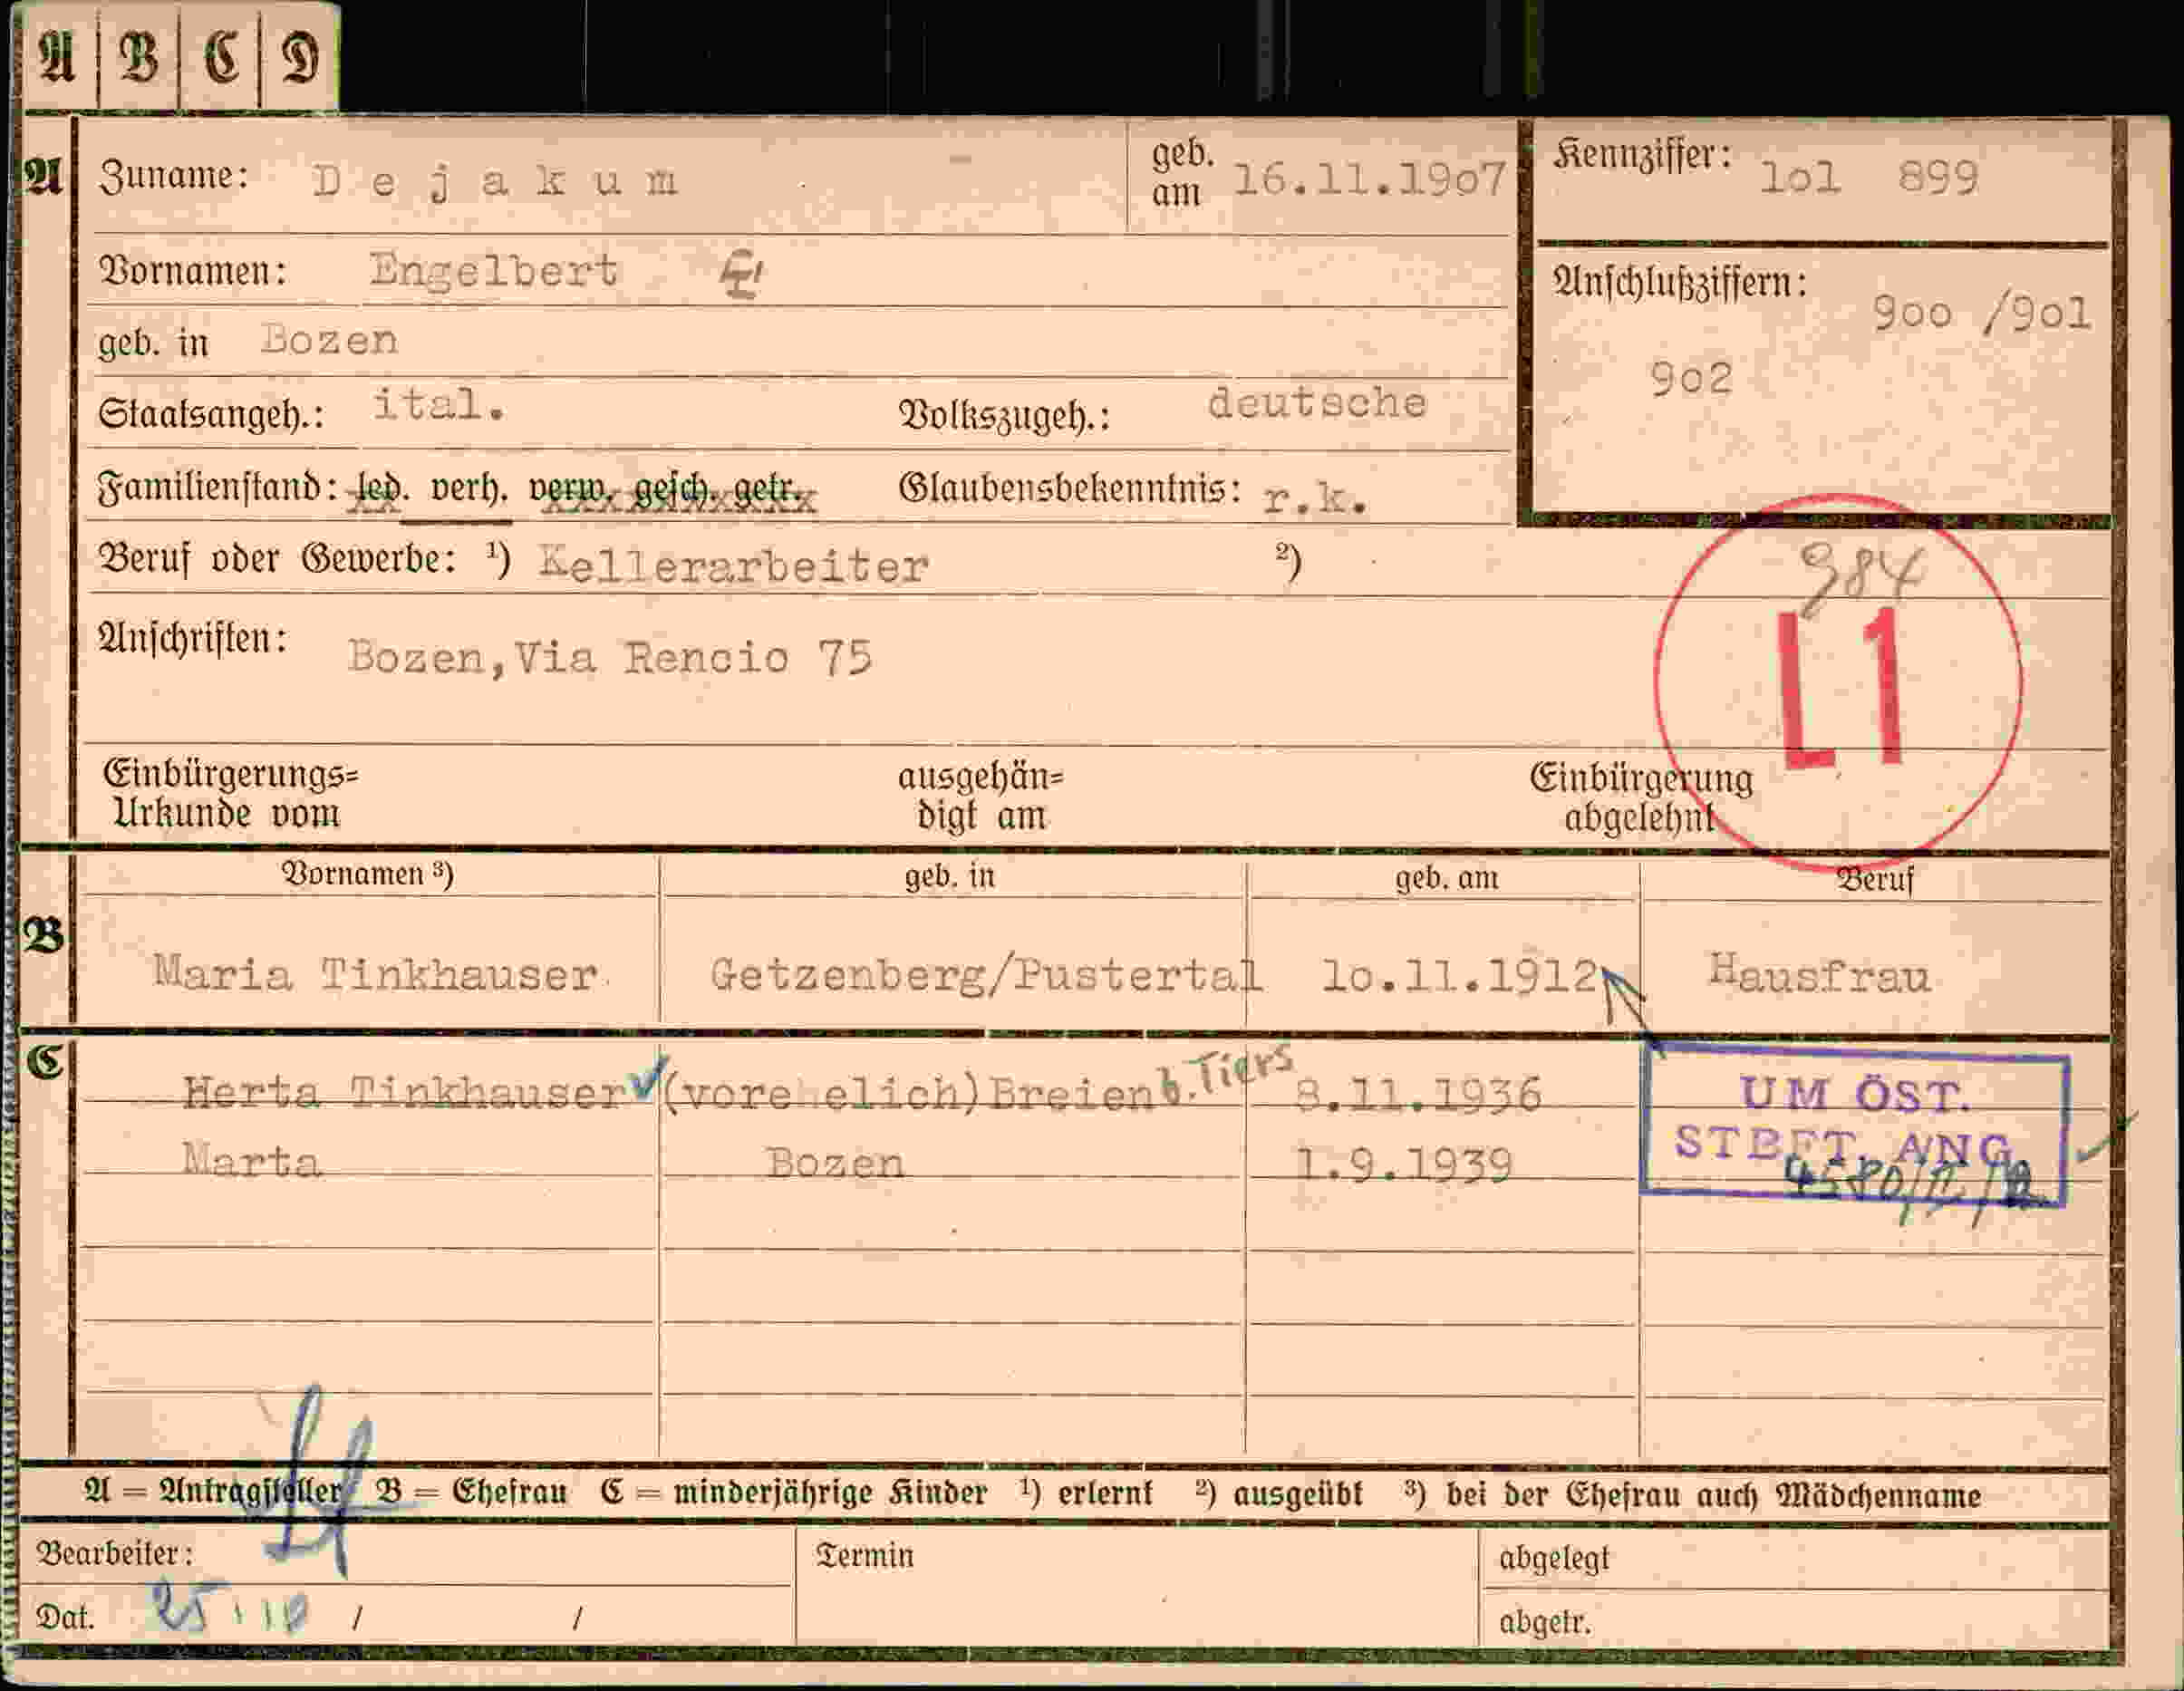 A B C D
A Zuname: Dejakum geb. am 16.11.19o7 Kennziffer: lol 899
Vornamen: Engelbert
Anschlußziffern: 9oo /9ol
geb. in Bozen
9o2
Staatsangeh.: ital. Volkszugeh.: deutsche
Familienstand: led. verh. verw. gesch. getr. Glaubensbekenntnis: r.k.
Beruf oder Gewerbe: ¹) Kellerarbeiter ²)
984
Anschriften: Bozen,Via Rencio 75
L1
Einbürgerungs= ausgehän= Einbürgerung
Urkunde vom digt am abgelehnt
Vornamen ³) geb. in geb. am Beruf
B Maria Tinkhauser Getzenberg/Pustertal lo.11.1912 Hausfrau
C Herta Tinkhauser (vorehelich) Breien b. Tiers 8.11.1936
Marta Bozen 1.9.1939
UM ÖST.
STBFT. ANG.
A = Antragsteller B = Ehefrau C = minderjährige Kinder ¹) erlernt ²) ausgeübt ³) bei der Ehefrau auch Mädchenname
Bearbeiter: Termin abgelegt
Dat. / / abgetr.